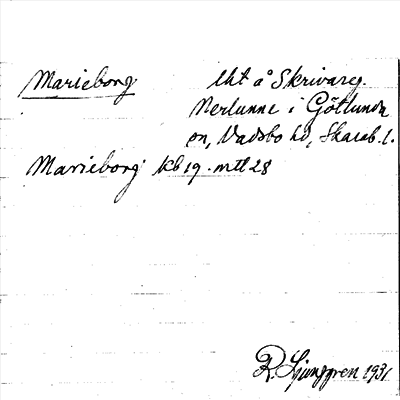 Marieborg lht å Skrivareg.
Nerlunne i Götlunda
sn, Vadsbo hd, Skarab. l.
Marieborg kb 19. mtl 28
R. Ljunggren 1931